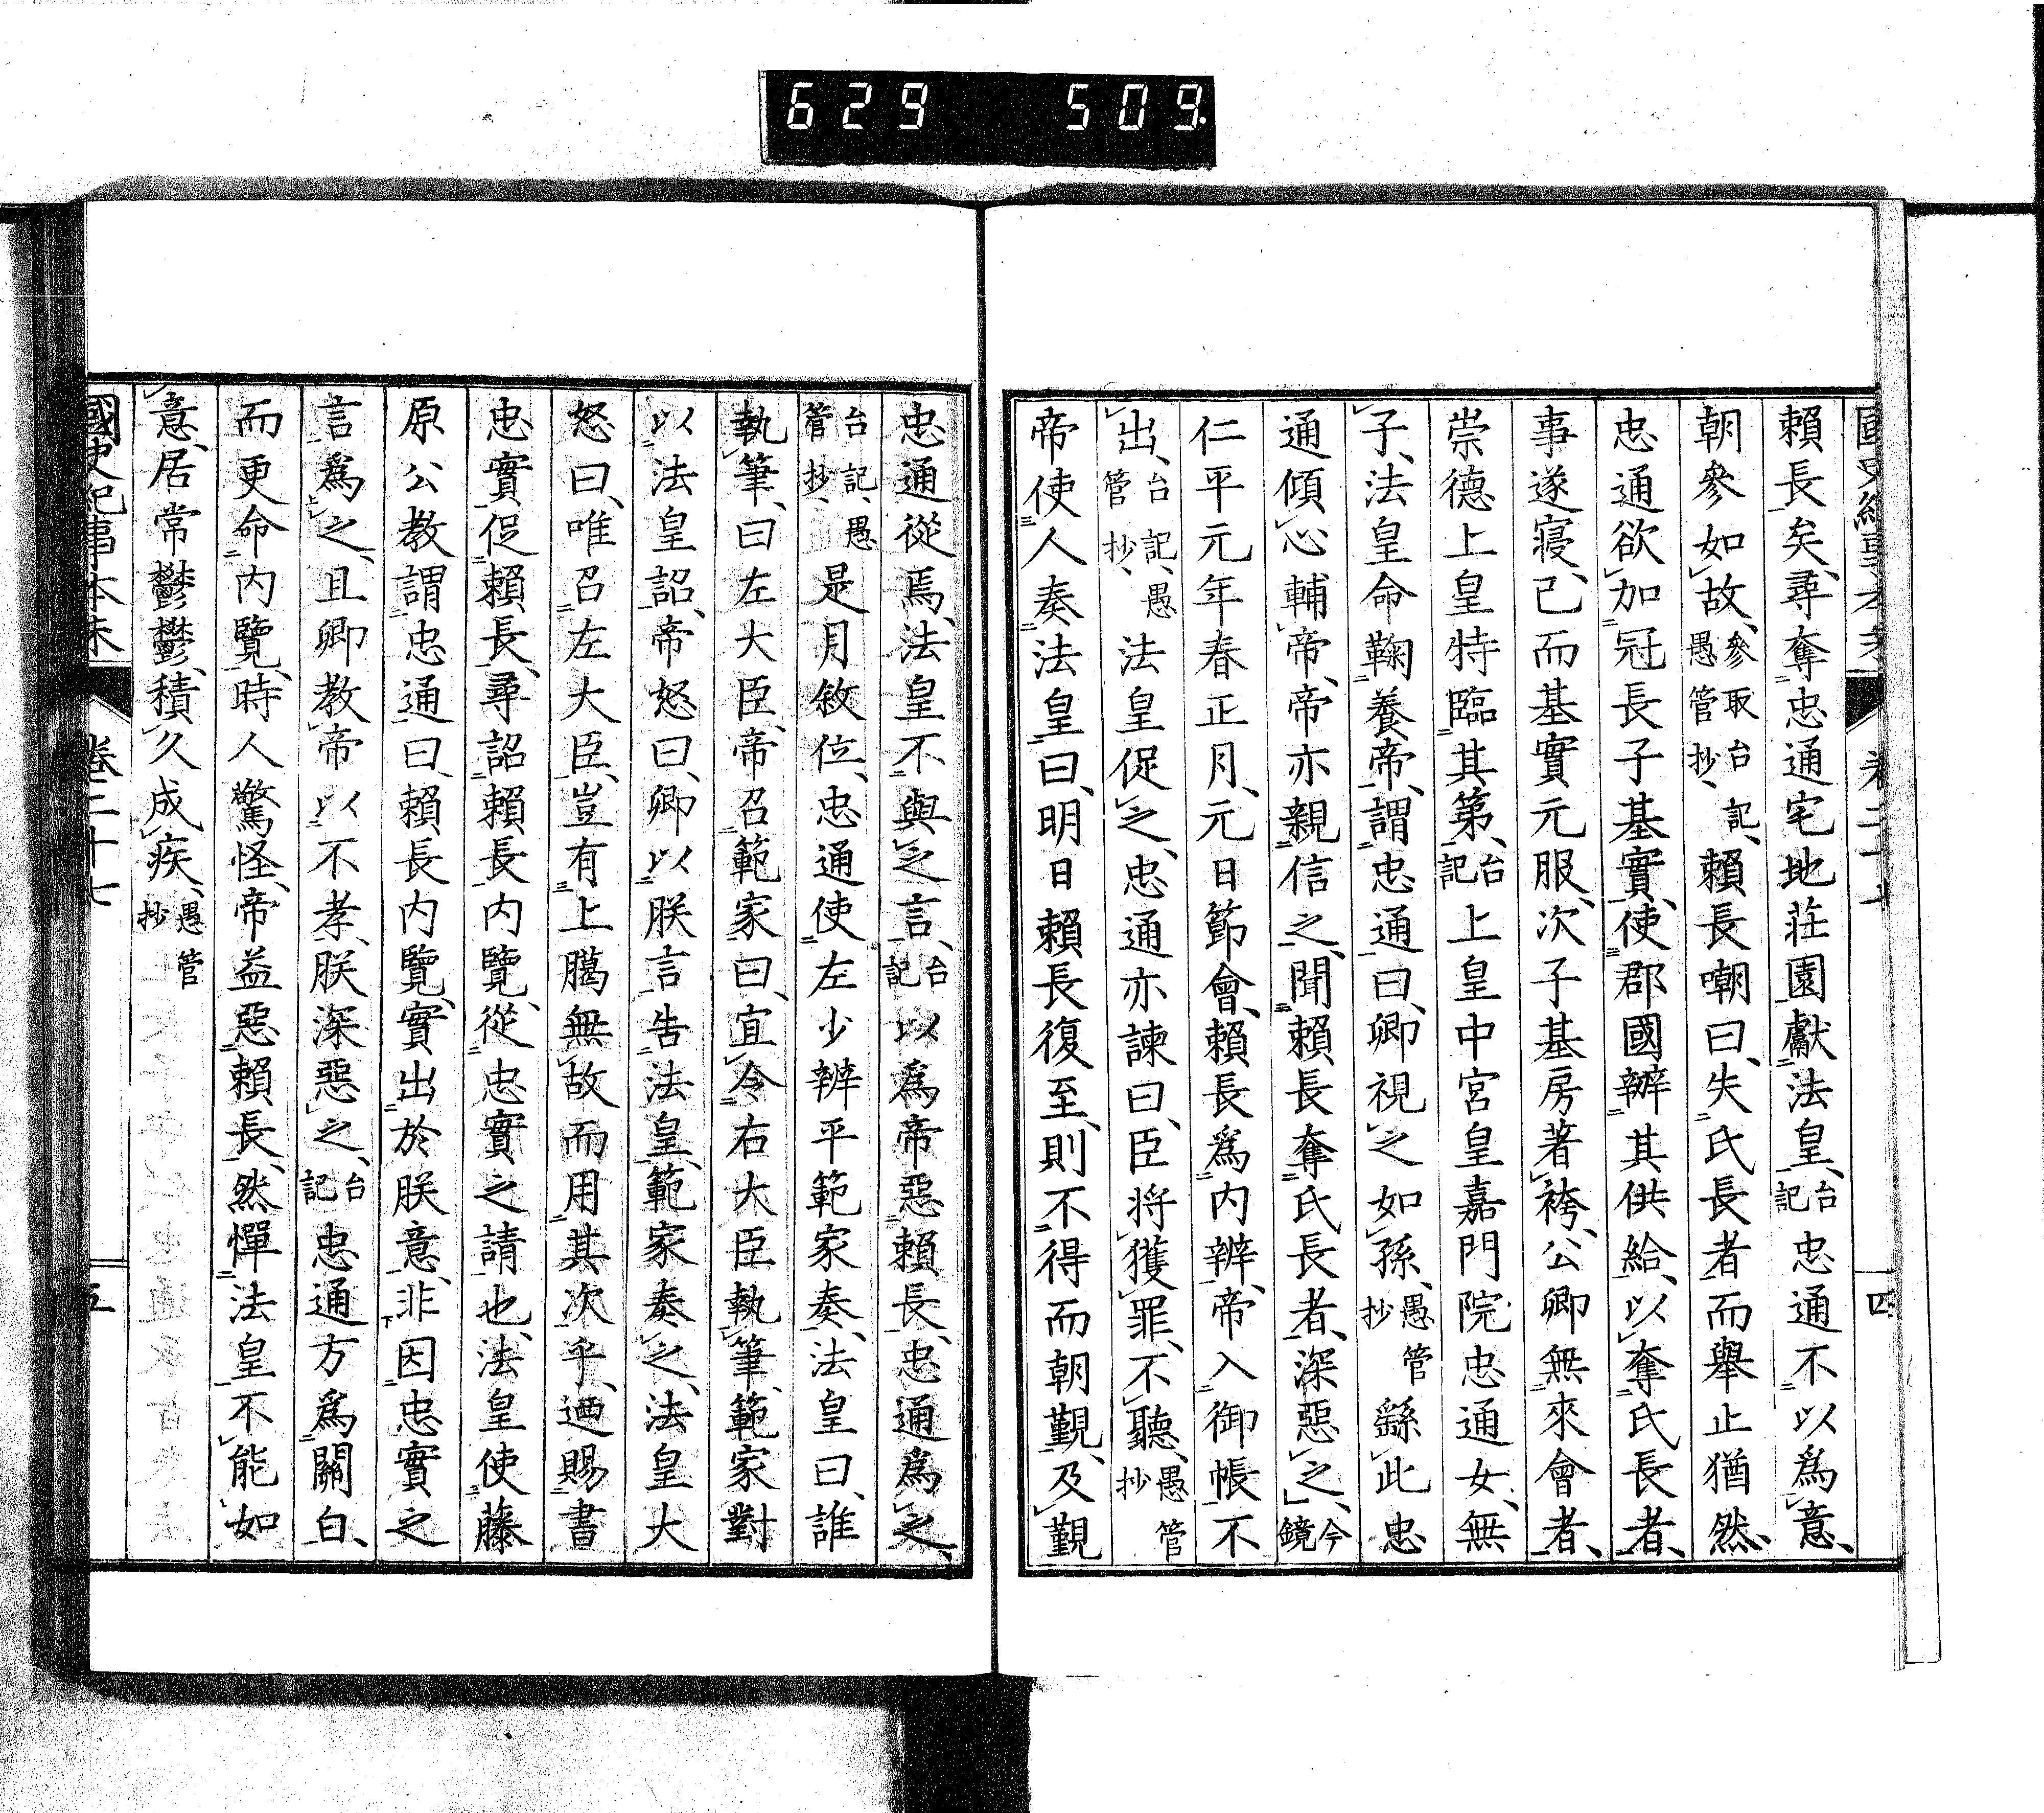 629 509.
國史紀事本末 卷二十七 四
賴長矣、尋奪忠通宅地莊園獻法皇、台記忠通不以爲意、
朝參如故、參取台記、愚管抄、賴長嘲曰、失氏長者而舉止猶然、
忠通欲加冠長子基實、使郡國辨其供給、以奪氏長者、
事遂寢、已而基實元服、次子基房著袴、公卿無來會者、
崇德上皇特臨其第、台記上皇中宮皇嘉門院忠通女、無
子、法皇命鞠養帝、謂忠通曰、卿視之如孫、愚管抄繇此忠
通傾心輔帝、帝亦親信之、聞賴長奪氏長者、深惡之、今鏡
仁平元年春正月、元日節會、賴長爲内辨、帝入御帳、不
出、台記、愚管抄、法皇促之、忠通亦諫曰、臣將獲罪、不聽、愚管抄
帝使人奏法皇曰、明日賴長復至、則不得而朝覲、及覲
忠通從焉、法皇不與之言、台記以爲帝惡賴長、忠通爲之、
台記、愚管抄、是月敘位、忠通使左少辨平範家奏、法皇曰、誰
執筆、曰左大臣、帝召範家曰、宜令右大臣執筆、範家對
以法皇詔、帝怒曰、卿以朕言告法皇、範家奏之、法皇大
怒曰、唯召左大臣、豈有上臈無故而用其次乎、迺賜書
忠實、促賴長、尋詔賴長内覽、從忠實之請也、法皇使藤
原公教謂忠通曰、賴長内覽、實出於朕意、非因忠實之
言爲之、且卿教帝以不孝、朕深惡之、台記忠通方爲關白、
而更命内覽、時人驚怪、帝益惡賴長、然憚法皇不能如
意、居常鬱鬱、積久成疾、愚管抄
國史紀事本末 卷二十七 五